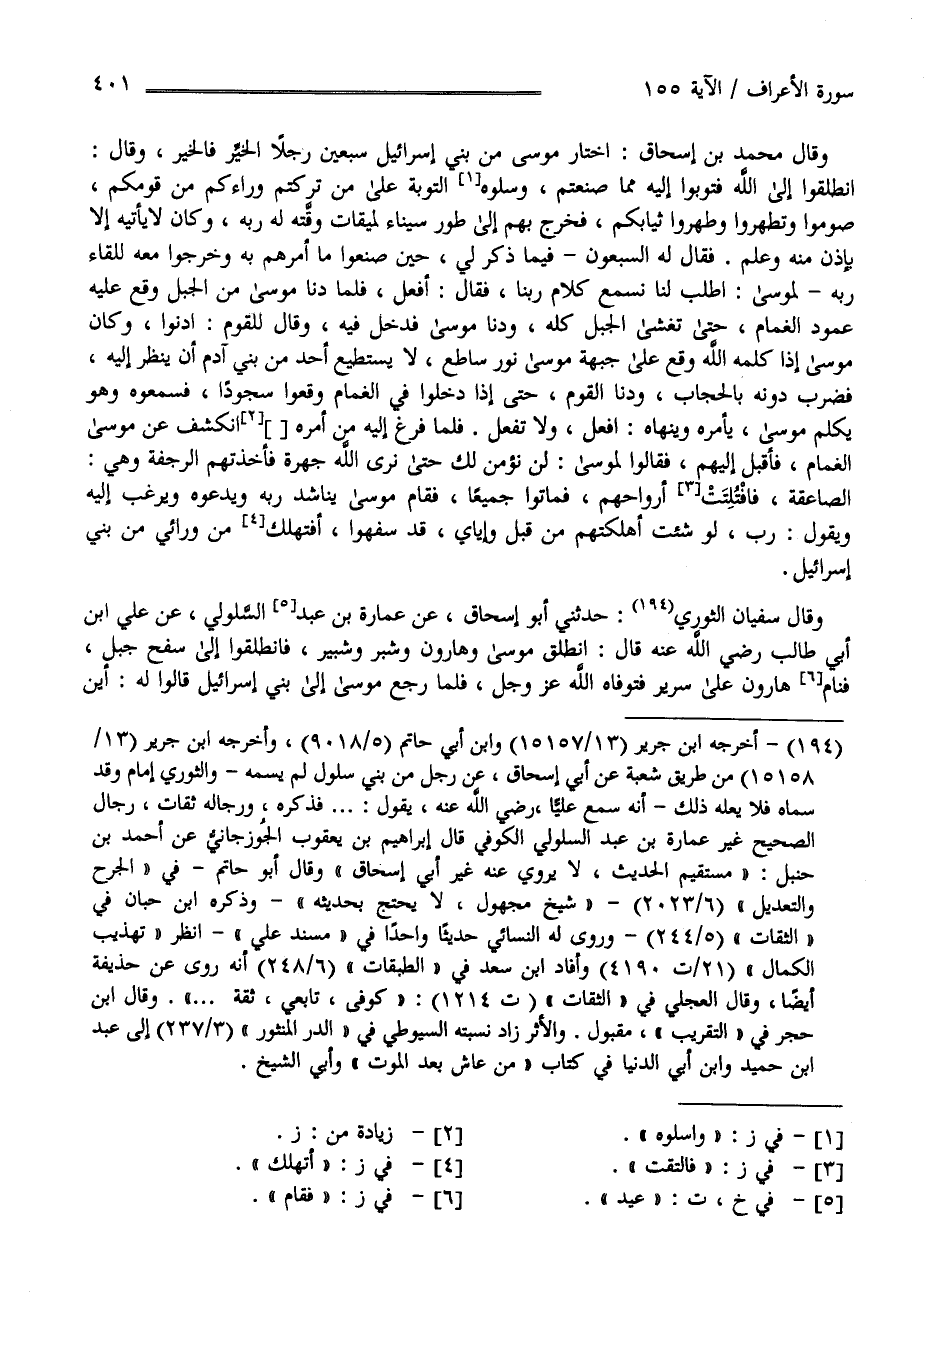 سورة الأعراف / الآية ١٥٥ ٤٠١
وقال محمد بن إسحاق : اختار موسى من بني إسرائيل سبعين رجلًا الخيِّر فالخير ، وقال :
انطلقوا إلىٰ اللَّه فتوبوا إليه مما صنعتم ، وسلوه[١] التوبة علىٰ من تركتم وراءكم من قومكم ،
صوموا وتطهروا وطهروا ثيابكم ، فخرج بهم إلىٰ طور سيناء لميقات وقَّته له ربه ، وكان لايأتيه إلا
بإذن منه وعلم . فقال له السبعون – فيما ذكر لي ، حين صنعوا ما أمرهم به وخرجوا معه للقاء
ربه – لموسىٰ : اطلب لنا نسمع كلام ربنا ، فقال : أفعل ، فلما دنا موسىٰ من الجبل وقع عليه
عمود الغمام ، حتىٰ تغشىٰ الجبل كله ، ودنا موسىٰ فدخل فيه ، وقال للقوم : ادنوا ، وكان
موسىٰ إذا كلمه اللَّه وقع علىٰ جبهة موسىٰ نور ساطع ، لا يستطيع أحد من بني آدم أن ينظر إليه ،
فضرب دونه بالحجاب ، ودنا القوم ، حتى إذا دخلوا في الغمام وقعوا سجودًا ، فسمعوه وهو
يكلم موسىٰ ، يأمره وينهاه : افعل ، ولا تفعل . فلما فرغ إليه من أمره [ ][٢]انكشف عن موسىٰ
الغمام ، فأقبل إليهم ، فقالوا لموسىٰ : لن نؤمن لك حتىٰ نرى اللَّه جهرة فأخذتهم الرجفة وهي :
الصاعقة ، فافْتُلِتَتْ[٣] أرواحهم ، فماتوا جميعًا ، فقام موسىٰ يناشد ربه ويدعوه ويرغب إليه
ويقول : رب ، لو شئت أهلكتهم من قبل وإياي ، قد سفهوا ، أفتهلك[٤] من ورائي من بني
إسرائيل .
وقال سفيان الثوري(١٩٤) : حدثني أبو إسحاق ، عن عمارة بن عبد[٥] السَّلولي ، عن علي ابن
أبي طالب رضي اللَّه عنه قال : انطلق موسىٰ وهارون وشبر وشبير ، فانطلقوا إلىٰ سفح جبل ،
فنام[٦] هارون علىٰ سرير فتوفاه اللَّه عز وجل ، فلما رجع موسىٰ إلىٰ بني إسرائيل قالوا له : أين
(١٩٤) – أخرجه ابن جرير (١٥١٥٧/١٣) وابن أبي حاتم (٩٠١٨/٥) ، وأخرجه ابن جرير (١٣/
١٥١٥٨) من طريق شعبة عن أبي إسحاق ، عن رجل من بني سلول لم يسمه – والثوري إمام وقد
سماه فلا يعله ذلك – أنه سمع عليًّا ،رضي اللَّه عنه ، يقول : ... فذكره ، ورجاله ثقات ، رجال
الصحيح غير عمارة بن عبد السلولي الكوفي قال إبراهيم بن يعقوب الجُوزجانيُّ عن أحمد بن
حنبل : « مستقيم الحديث ، لا يروي عنه غير أبي إسحاق » وقال أبو حاتم – في « الجرح
والتعديل » (٢٠٢٣/٦) – « شيخ مجهول ، لا يحتج بحديثه » – وذكره ابن حبان في
« الثقات » (٢٤٤/٥) – وروى له النسائي حديثًا واحدًا في « مسند علي » – انظر « تهذيب
الكمال » (٢١/ت ٤١٩٠) وأفاد ابن سعد في « الطبقات » (٢٤٨/٦) أنه روى عن حذيفة
أيضًا ، وقال العجلي في « الثقات » ( ت ١٢١٤) : « كوفى ، تابعي ، ثقة ...» . وقال ابن
حجر في « التقريب » ، مقبول . والأثر زاد نسبته السيوطي في « الدر المنثور » (٢٣٧/٣) إلى عبد
ابن حميد وابن أبي الدنيا في كتاب « من عاش بعد الموت » وأبي الشيخ .
[١] – في ز : « واسلوه » . [٢] – زيادة من : ز .
[٣] – في ز : « فالتقت » . [٤] – في ز : « أتهلك » .
[٥] – في خ ، ت : « عيد » . [٦] – في ز : « فقام » .